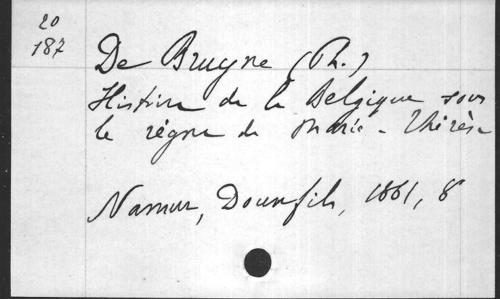 20
187
De Bruyne (Ph.)
Histoire de la Belgique sous
le règne de Marie-Thérèse
Namur, Dounfils, 1861, 8